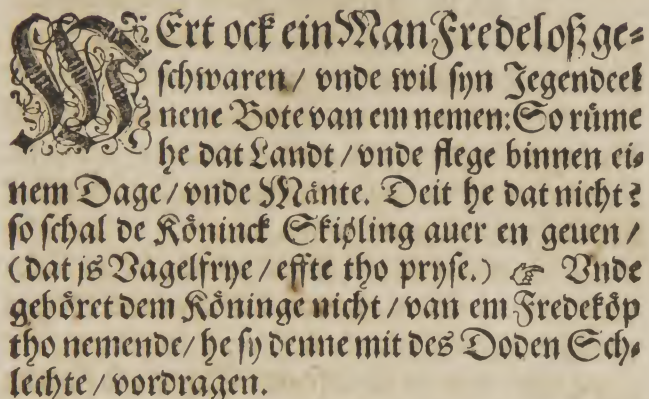 WErt ock ein Man Fredeloß ge⸗
schwaren / vnde wil syn Jegendeel
nene Bote van em nemen: So rüme
he dat Landt / vnde flege binnen ei⸗
nem Dage / vnde Mänte. Deit he dat nicht?
so schal de Köninck Skipling auer en geuen /
(dat js Vagelfrye / effte tho pryse.) ☞ Vnde
geböret dem Köninge nicht / van em Fredeköp
tho nemende / he sy denne mit des Doden Sch⸗
lechte / vordragen.